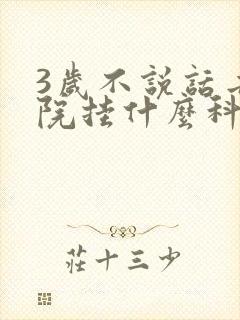 3歲不說話
院挂什麼科
莊十三少